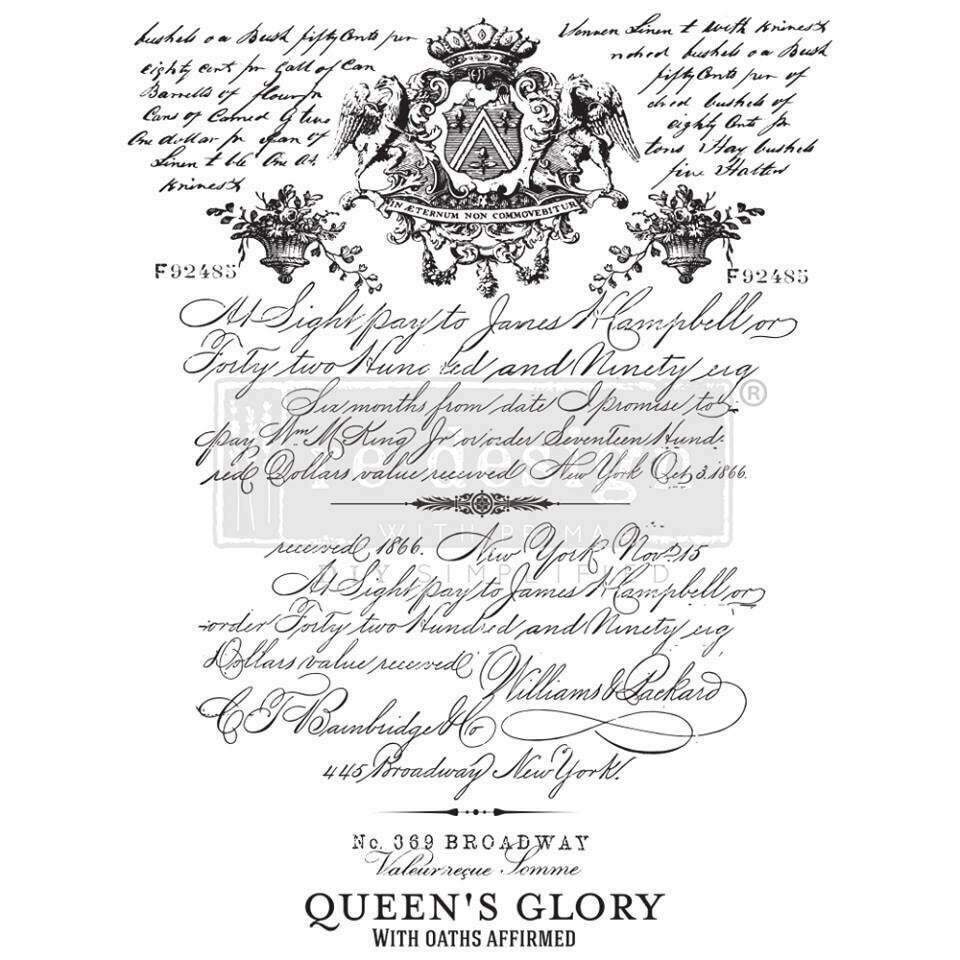 bushels oa Bush fifty Cents per
eighty cent pr Gall of Can
Barrells of flour pr
Cans of Corned
One dollar pr of
Linen t ble One At
Linen t with
bushels oa Bush
fifty Cents per of
bushels of
eighty Cents pr
tons Hay bushels
five
IN ÆTERNUM NON COMMOVEBITUR
F92485
F92485
At Sight pay to James H Campbell or
Forty two Hund ed and Ninety eig
Six months from date I promise to
pay Wm McKing Jr or order Seventeen Hund-
red Dollars value received New York Oct 3. 1866.
re·design
WITH PRIMA
DIY SIMPLIFIED
®
received 1866. New York Nov. 15
At Sight pay to James H Campbell or
order Forty two Hundred and Ninety eig
Dollars value received
Williams & Packard
C T Bainbridge & Co
445 Broadway New York.
No. 369 BROADWAY
Valeur reçue Somme
QUEEN'S GLORY
WITH OATHS AFFIRMED